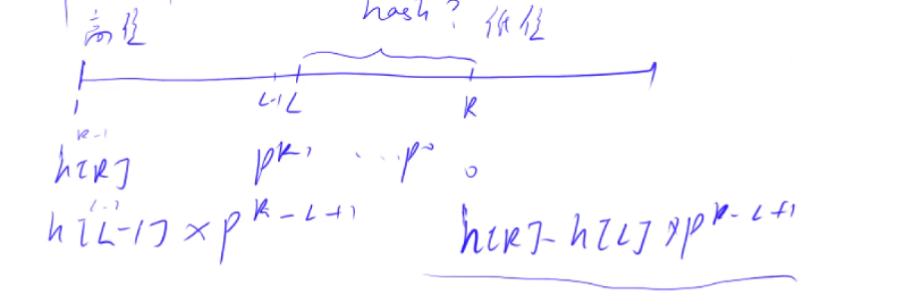 hash?
高位 低位
1 L-1 L R
R-1
h[R] p^R-1 ... p^0 0
h[L-1] × p^R-L+1 h[R]-h[L]×p^R-L+1